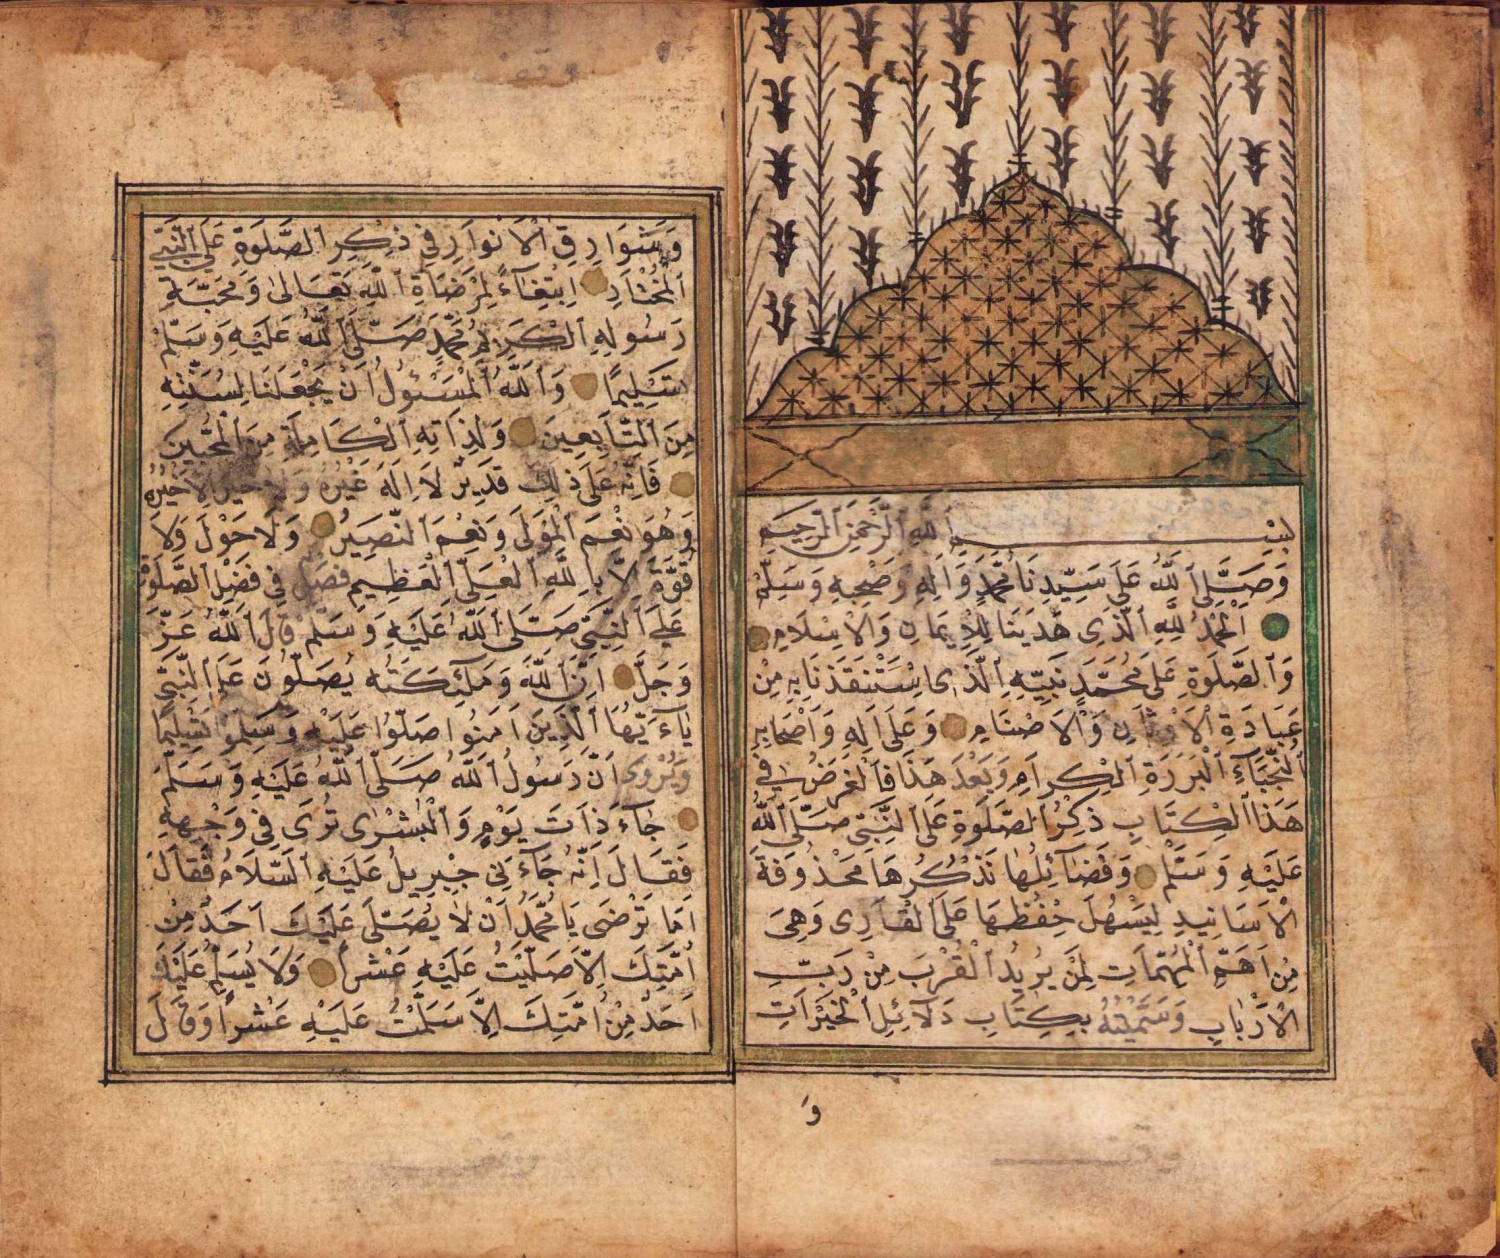 بِسْــــــمِ ٱللَّهِ ٱلرَّحْمَنِ ٱلرَّحِيمِ
وَصَلَّى ٱللَّهُ عَلَى سَيِّدِنَا مُحَمَّدٍ وَآلِهِ وَصَحْبِهِ وَسَلَّمْ
ٱلْحَمْدُ لِلَّهِ ٱلَّذِي هَدَيٰنَا لِلْإِيمَانِ وَالْإِسْلَامِ
وَٱلصَّلَوةِ عَلَى مُحَمَّدٍ نَبِيِّهِ ٱلَّذِي اسْتَنْقَذَنَا بِهِ مِنْ
عِبَادَةِ ٱلْأَوْثَانِ وَٱلْأَصْنَامِ وَعَلَى آلِهِ وَأَصْحَابِهِ
ٱلنُّجَبَاءِ ٱلْبَرَرَةِ ٱلْكِرَامِ وَبَعْدَ هَذَا فَالْغَرَضُ فِي
هَذَا ٱلْكِتَابِ ذِكْرُ ٱلصَّلَوةِ عَلَى ٱلنَّبِيِّ صَلَّى ٱللَّهُ
عَلَيْهِ وَسَلَّمْ وَفَضَائِلُهَا نَذْكُرُهَا مَحْذُوفَةَ
ٱلْأَسَانِيدِ لِيَسْهُلَ حِفْظُهَا عَلَى ٱلْقَارِى وَهِيَ
مِنْ أَهَمِّ ٱلْمُهِمَّاتِ لِمَنْ يُرِيدُ ٱلْقُرْبَ مِنْ رَبِّ
ٱلْأَرْبَابِ وَسَمَّيْتُهُ بِكِتَابِ دَلَائِلِ ٱلْخَيْرَاتِ
وَ
وَشَوَارِقِ ٱلْأَنْوَارِ فِي ذِكْرِ ٱلصَّلَوةِ عَلَى ٱلنَّبِيِّ
ٱلْمُخْتَارِ ابْتِغَاءً لِمَرْضَاةِ ٱللَّهِ تَعَالَى وَمَحَبَّةً فِي
رَسُولِهِ ٱلْكَرِيمِ مُحَمَّدٍ صَلَّى ٱللَّهُ عَلَيْهِ وَسَلَّمْ
تَسْلِيمًا وَٱللَّهُ ٱلْمَسْئُولُ أَنْ يَجْعَلَنَا لِسُنَّتِهِ
مِنَ ٱلتَّابِعِينَ وَلِذَاتِهِ ٱلْكَامِلَةِ مِنَ ٱلْمُحِبِّينَ
فَإِنَّهُ عَلَى ذَلِكَ قَدِيرٌ لَا إِلَهَ غَيْرُهُ وَلَا خَيْرَ إِلَّا خَيْرُهُ
وَهُوَ نِعْمَ ٱلْمَوْلَى وَنِعْمَ ٱلنَّصِيرُ وَلَا حَوْلَ وَلَا
قُوَّةَ إِلَّا بِاللَّهِ ٱلْعَلِيِّ ٱلْعَظِيمِ فَصْلٌ فِي فَضْلِ ٱلصَّلَوةِ
عَلَى ٱلنَّبِيِّ صَلَّى ٱللَّهُ عَلَيْهِ وَسَلَّمْ قَالَ ٱللَّهُ عَزَّ
وَجَلَّ إِنَّ ٱللَّهَ وَمَلَئِكَتَهُ يُصَلُّونَ عَلَى ٱلنَّبِيِّ
يَاءَيُّهَا ٱلَّذِينَ آمَنُوا صَلُّوا عَلَيْهِ وَسَلِّمُوا تَسْلِيمًا
وَيُرْوَى أَنَّ رَسُولَ ٱللَّهِ صَلَّى ٱللَّهُ عَلَيْهِ وَسَلَّمَ
جَاءَ ذَاتَ يَوْمٍ وَٱلْبُشْرَى تُرَى فِي وَجْهِهِ
فَقَالَ إِنَّهُ جَاءَنِي جِبْرِيلُ عَلَيْهِ ٱلسَّلَامُ فَقَالَ
أَمَا تَرْضَى يَا مُحَمَّدُ أَنْ لَا يُصَلِّيَ عَلَيْكَ أَحَدٌ مِنْ
أُمَّتِكَ إِلَّا صَلَّيْتُ عَلَيْهِ عَشْرًا وَلَا يُسَلِّمُ عَلَيْكَ
أَحَدٌ مِنْ أُمَّتِكَ إِلَّا سَلَّمْتُ عَلَيْهِ عَشْرًا وَقَالَ